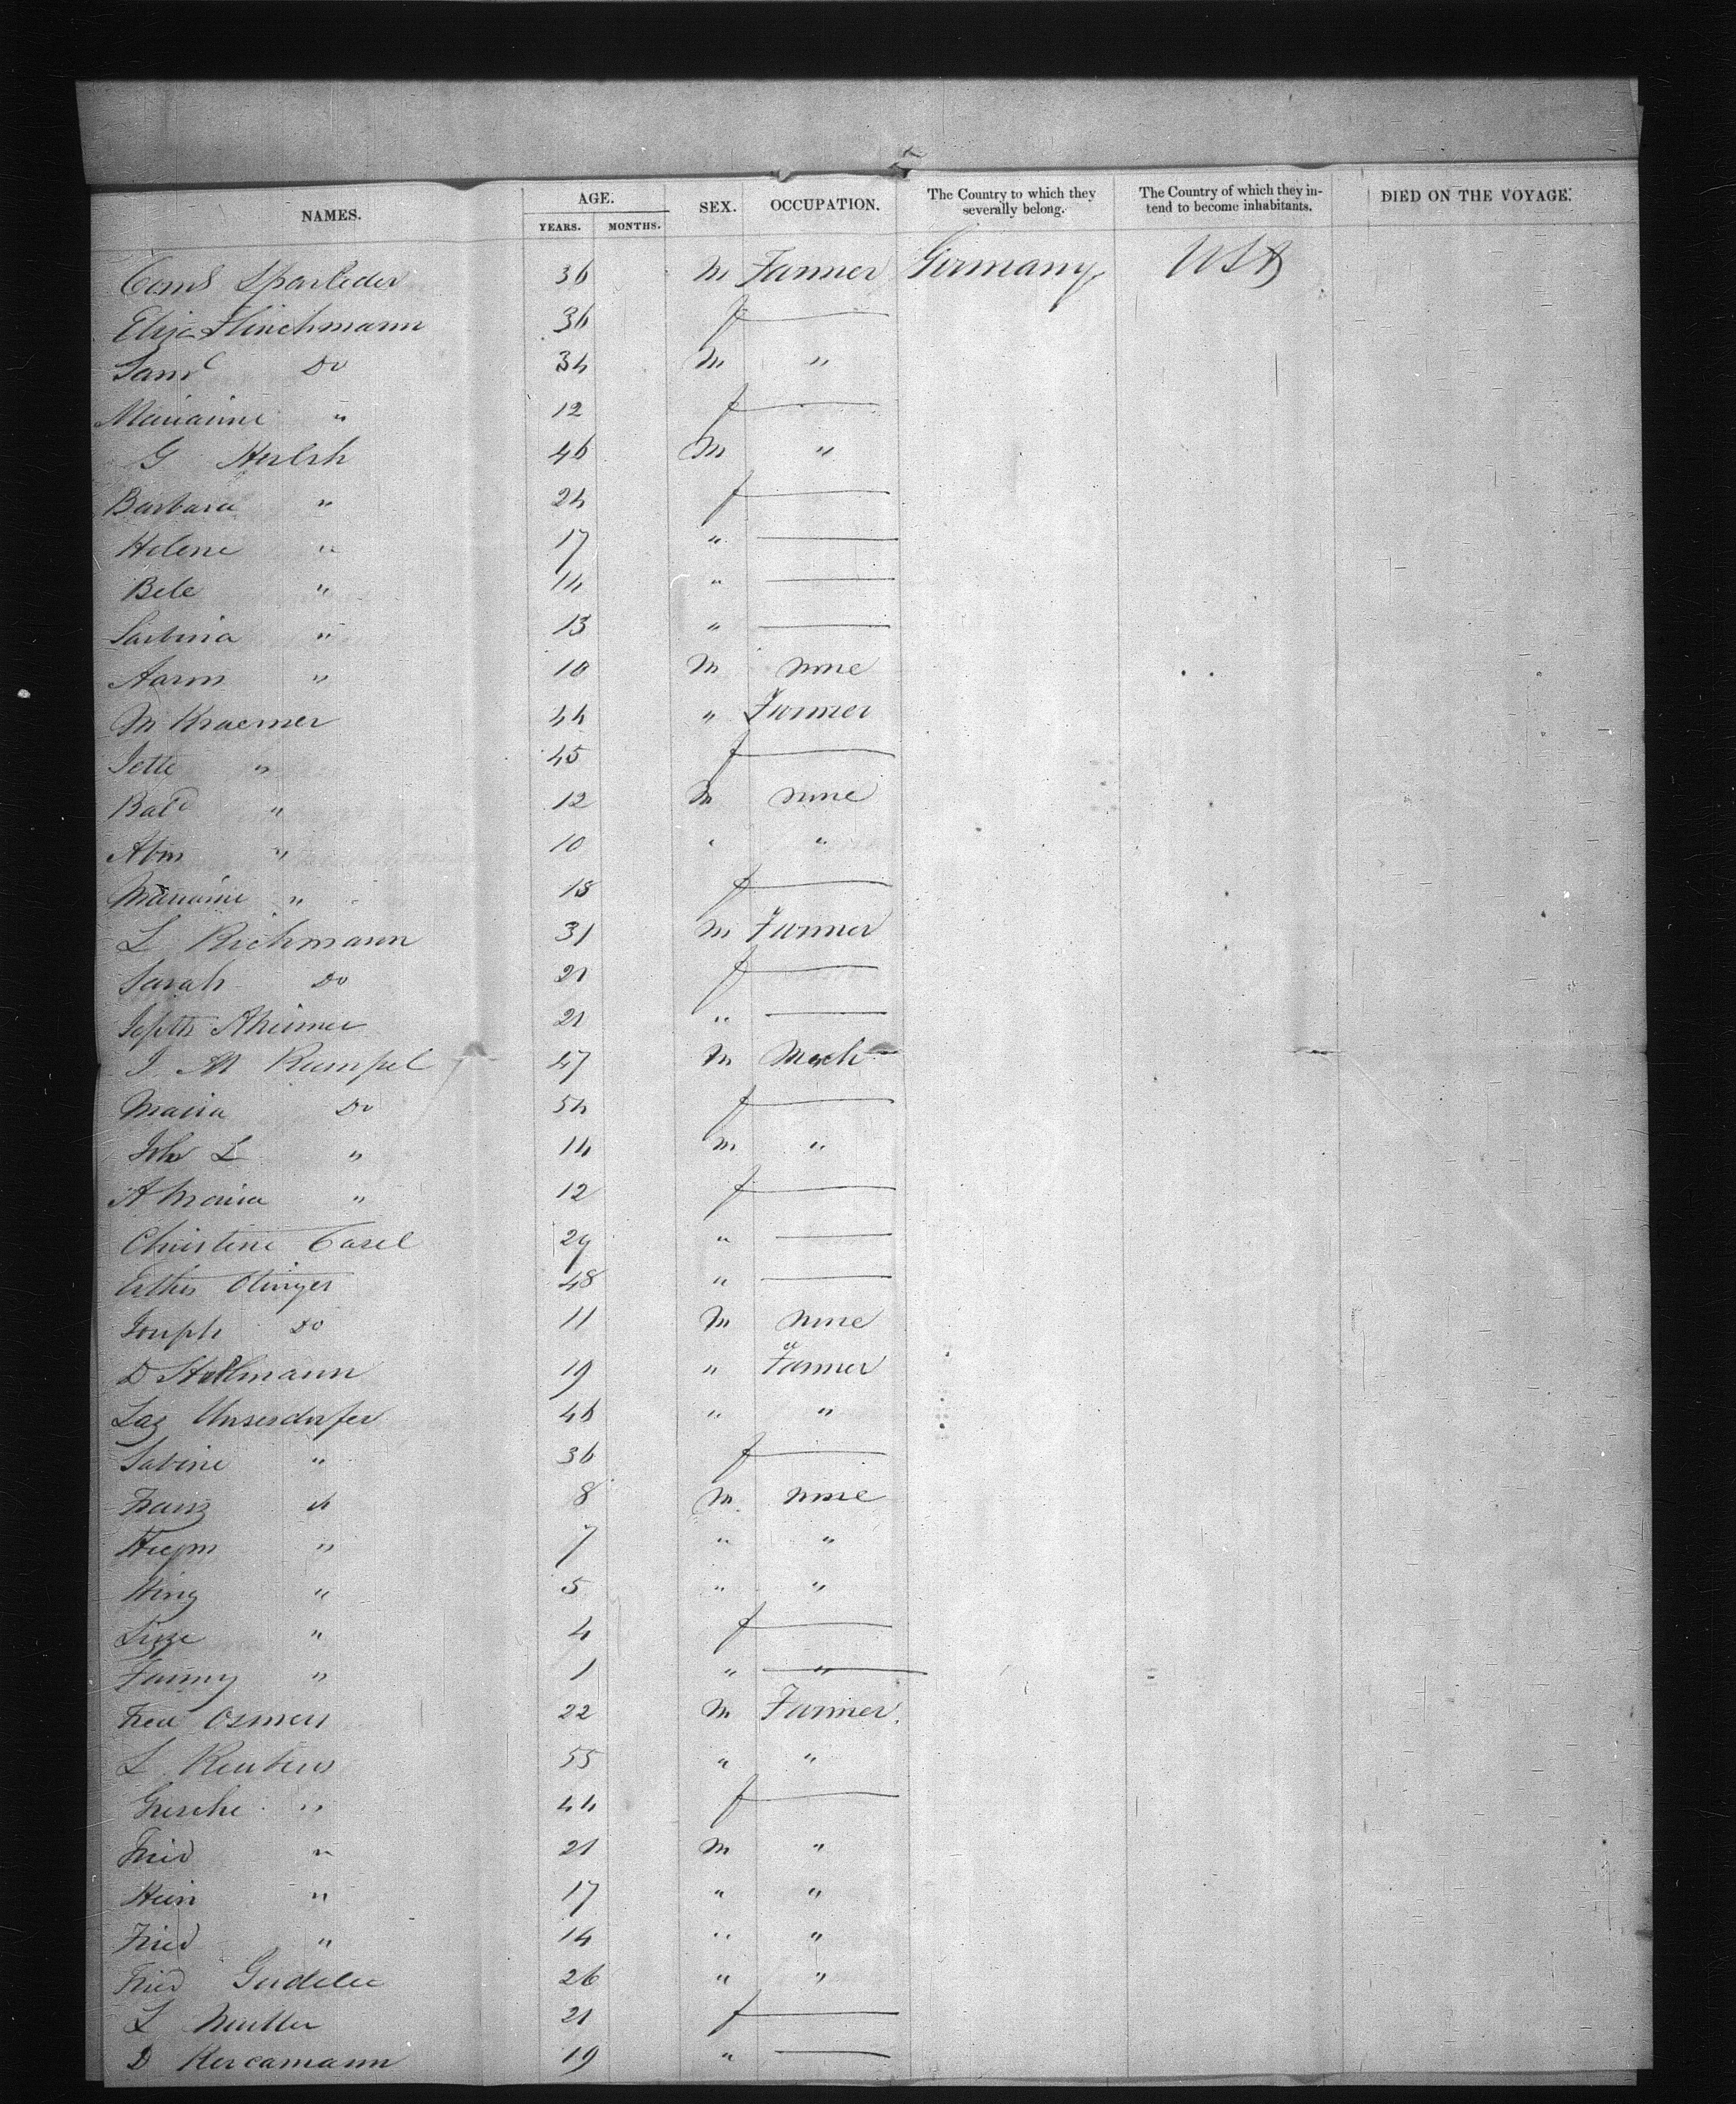 NAMES. AGE. SEX. OCCUPATION. The Country to which they severally belong. The Country of which they intend to become inhabitants. DIED ON THE VOYAGE.
YEARS. MONTHS.
36 m Farmer Germany USA
Eliza Hinchmann 36 f —
Saml Do 34 m "
Marianne " 12 f —
G 46 m "
Barbara " 24 f —
Helene " 17 " —
Bele " 14 " —
Sarbina " 13 " —
Aaron " 10 m none
M Kraemer 44 " Farmer
Jette " 45 f —
" 12 m none
Abm " 10 " "
Marianne " 18 f —
L Richmann 31 m Farmer
Sarah Do 21 f —
21 " —
J M Rumpel 47 m Mech
Maria Do 54 f —
Joh L " 14 m "
A Maria " 12 f —
Christine Casel 29 " —
Esther Otinger 48 " —
Joseph Do 11 m none
D Stallmann 19 " Farmer
Laz Unsersdorfer 46 " "
Sabine " 36 f —
Franz " 8 m none
" 7 " "
" 5 " "
Lizze " 4 f —
Fanny " 1 " "
Fred Osmers 22 m Farmer.
L Reubens 55 " "
Gresche " 44 f —
Fried " 21 m "
Hein " 17 " "
Fried " 14 " "
Fried 26 " "
L Muller 21 f —
D 19 " —